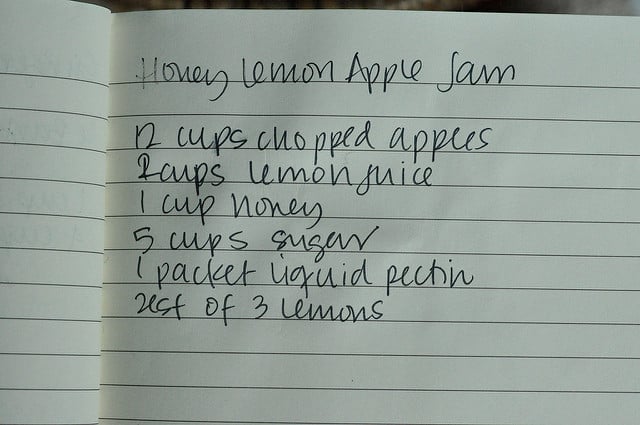 Honey Lemon Apple Jam
12 cups chopped apples
2 cups lemon juice
1 cup honey
5 cups sugar
1 packet liquid pectin
zest of 3 lemons